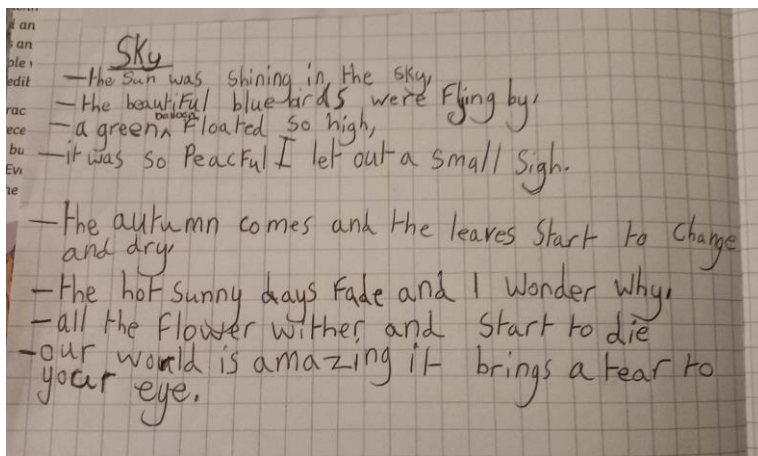 d an
s an
ple
edit
rac
ece
bu
Evi
ne
Sky
-the Sun was shining in the sky,
-the beautiful blue birds were Flying by,
-a green balloon Floated so high,
-it was so PeacFul I let out a small sigh.
-the autumn comes and the leaves Start to change
and dry,
-the hot sunny days Fade and I wonder why,
-all the Flower wither, and start to die
-our world is amazing it brings a tear to
your eye.